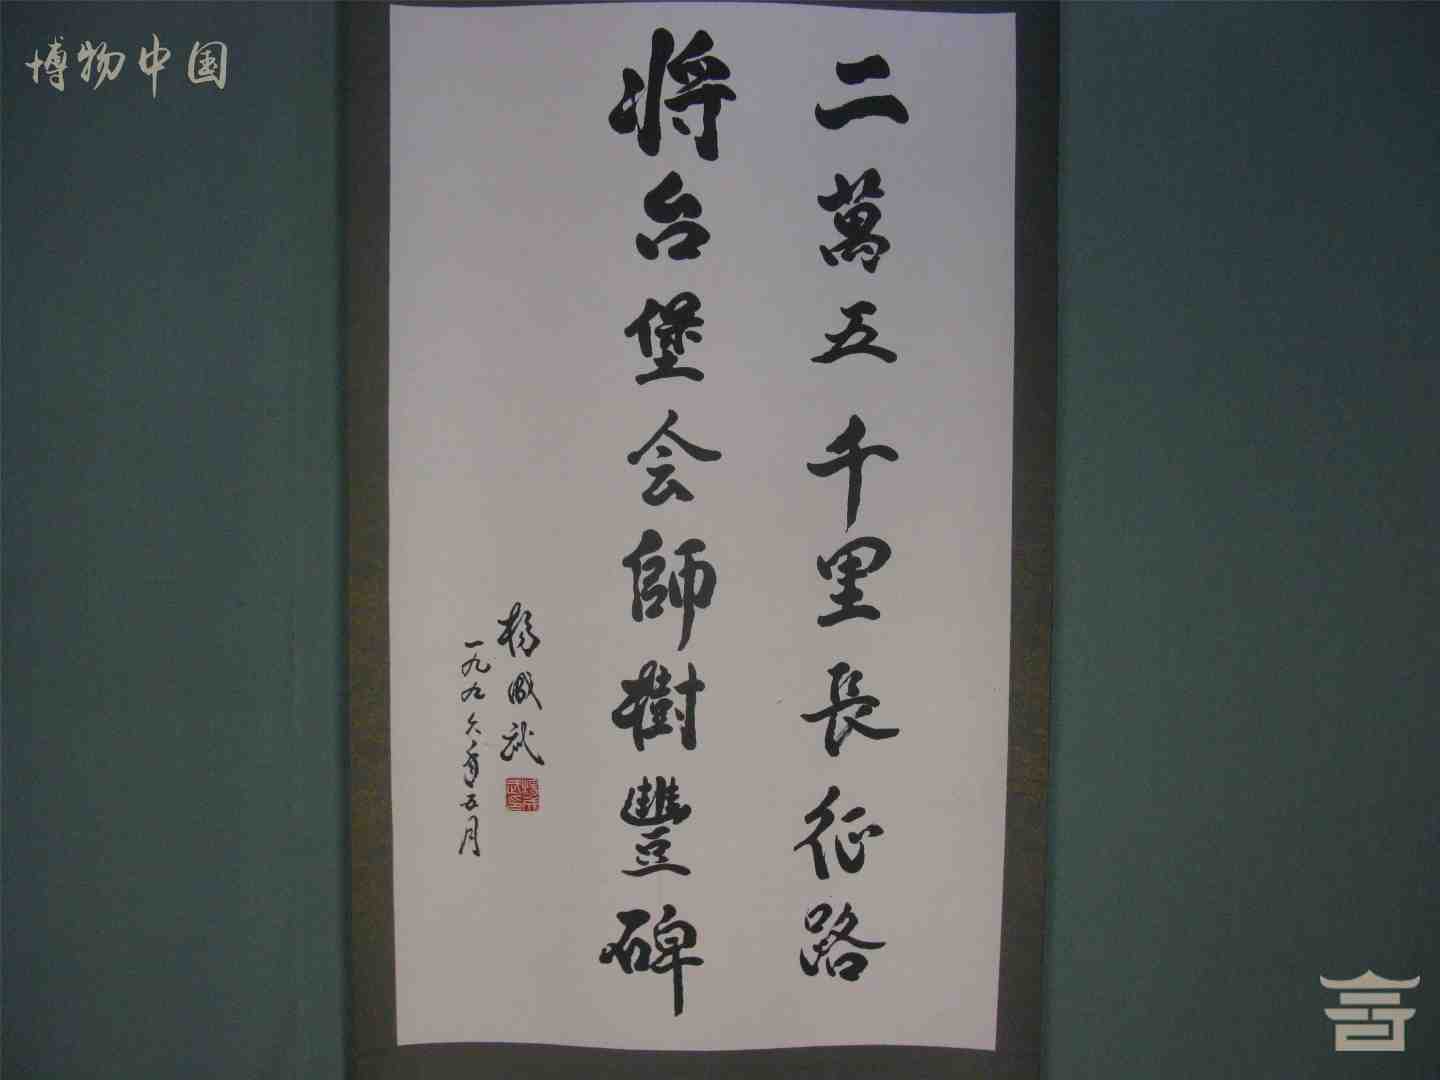 博物中国
二萬五千里長征路
将台堡会師樹豐碑
楊成武
一九九六年五月